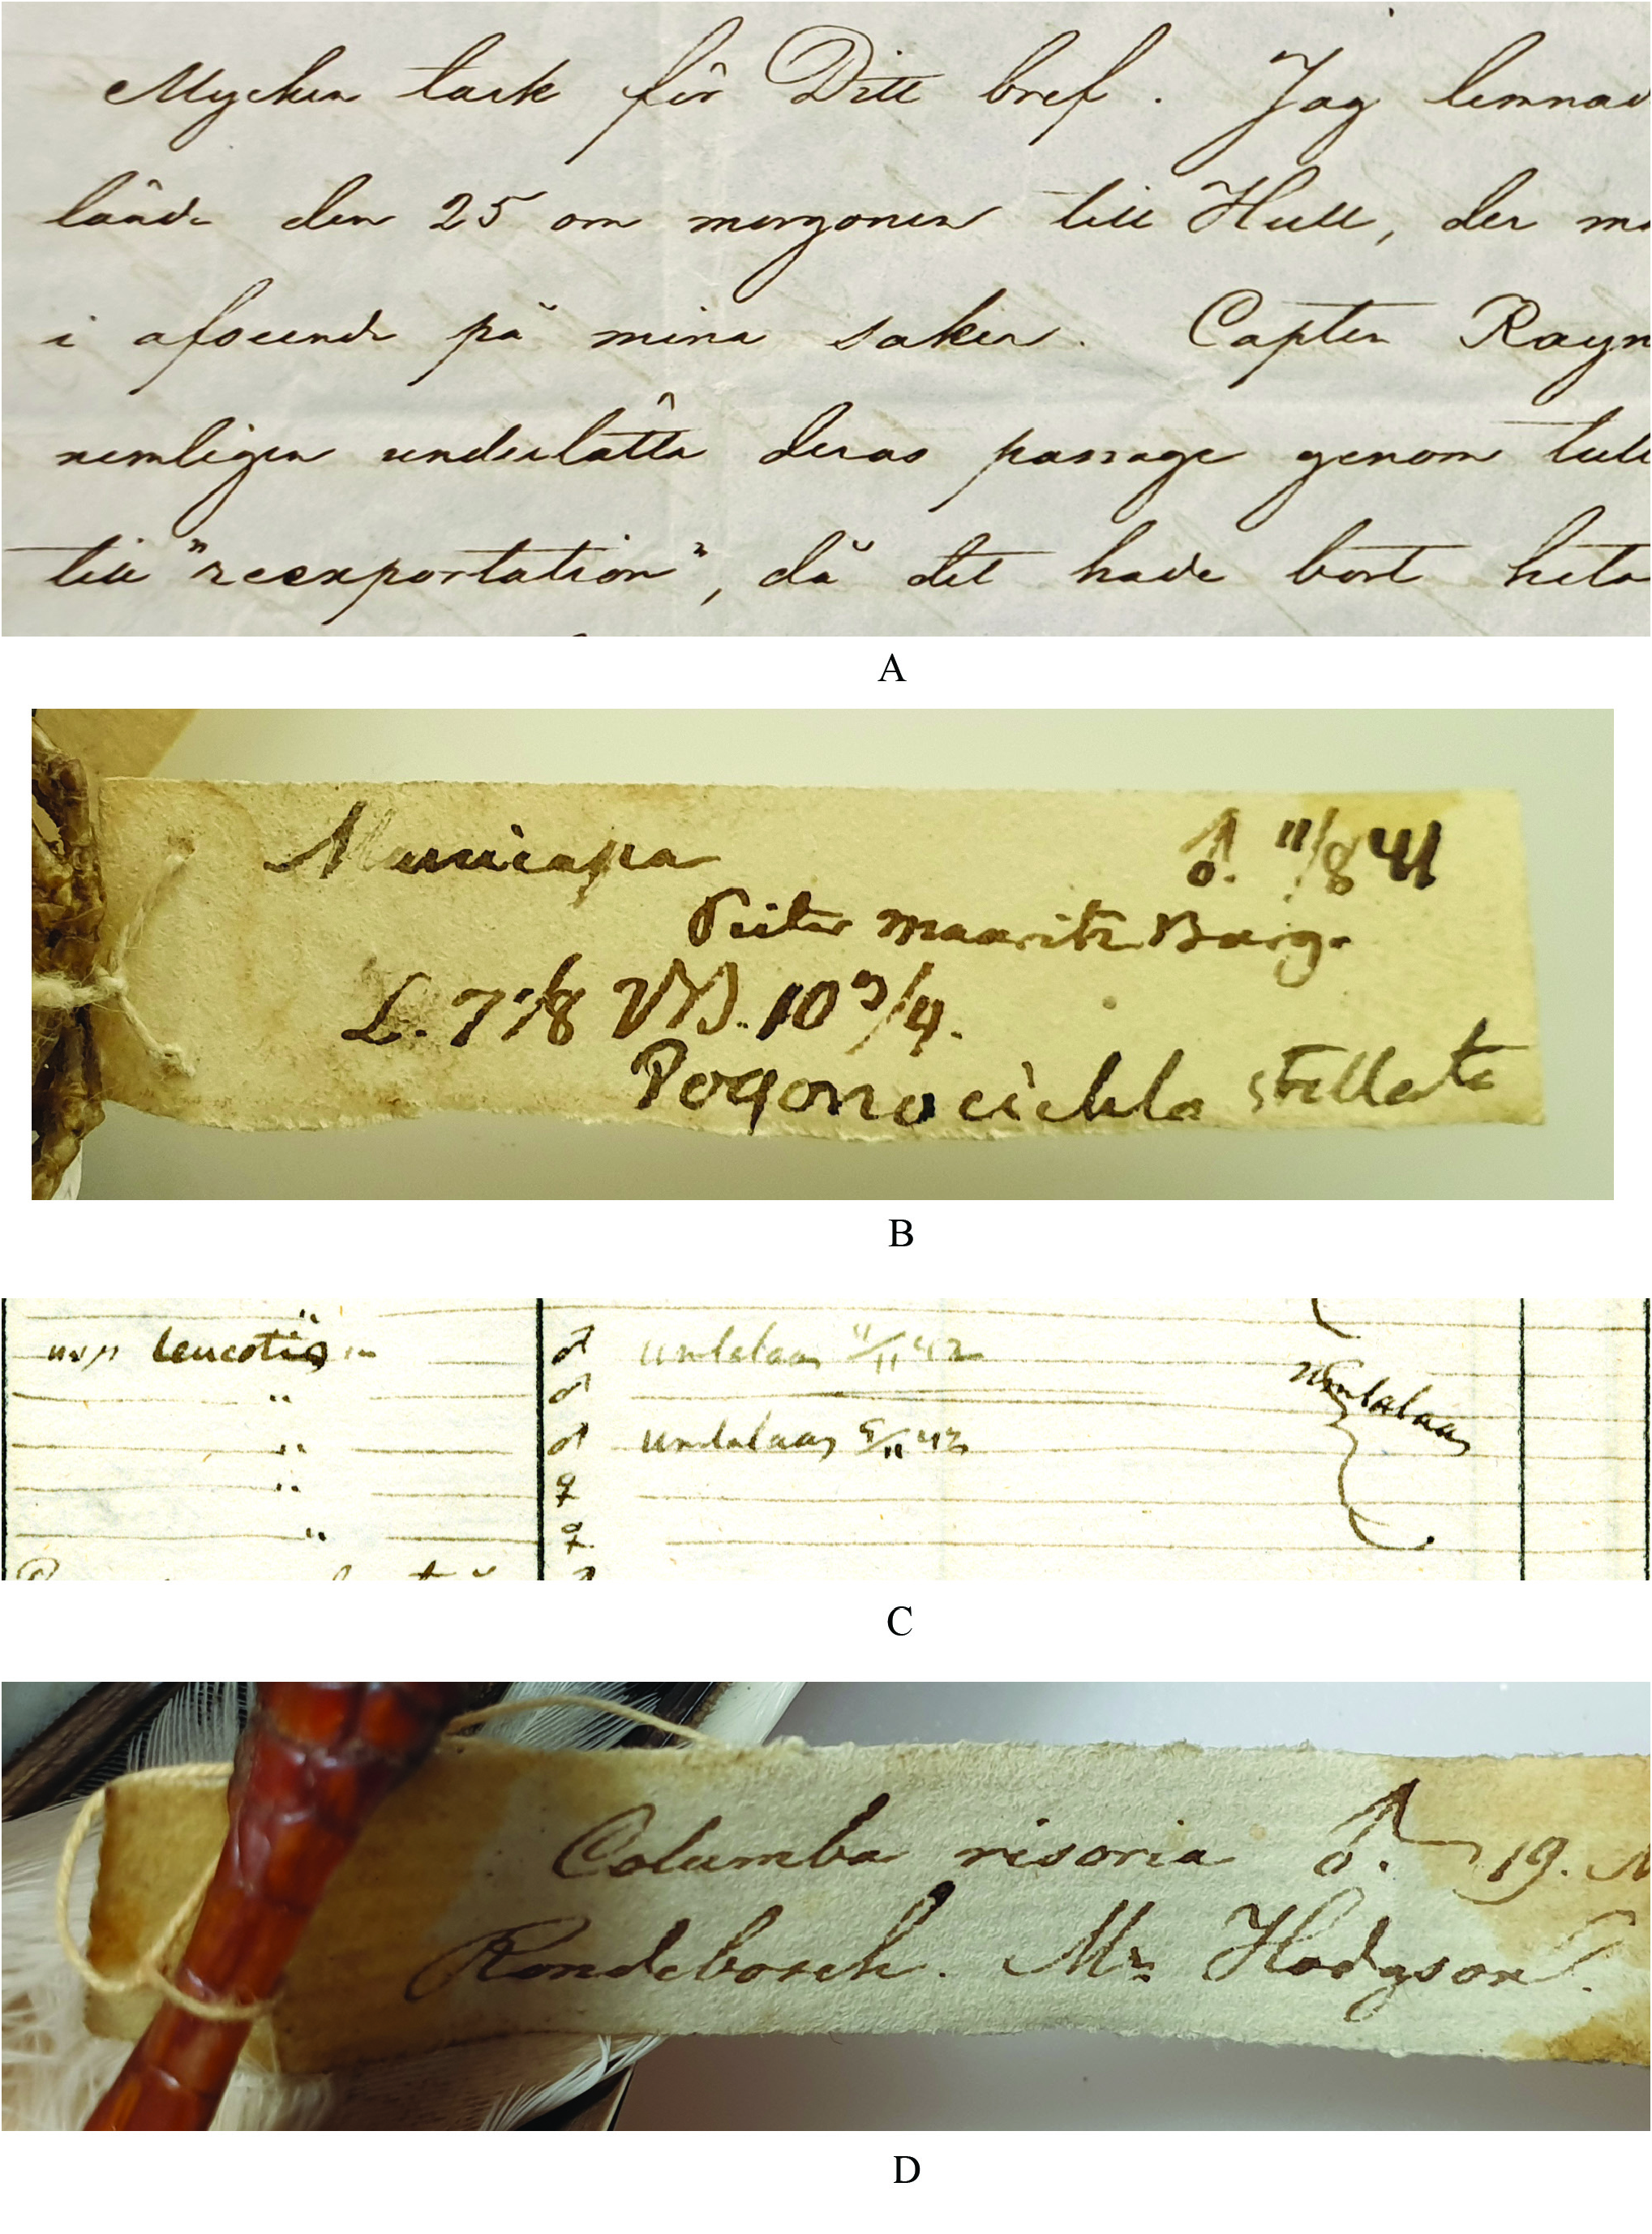 Mycken tack för Ditt bref. Jag lemnad
lände den 25 om morgonen till Hull, der
i afseende på mina saker. Capten Rayn
nemligen underlätta deras passage genom tull
till "reexportation", då det hade bort heta
A
Muscicapa ♂. 11/8 41
Pieter Maaritz Burg.
L. 7 1/8 VB. 10 3/4.
Pogonocichla stellata
B
"
leucotis ♂ Umlalaas 11/11 42
" ♂ Umlalaas
" ♂ Umlalaas 5/11 42
" ♀
" ♀
C
Columba risoria ♂. 19.
Rondebosch. Mr. Hodgson.
D